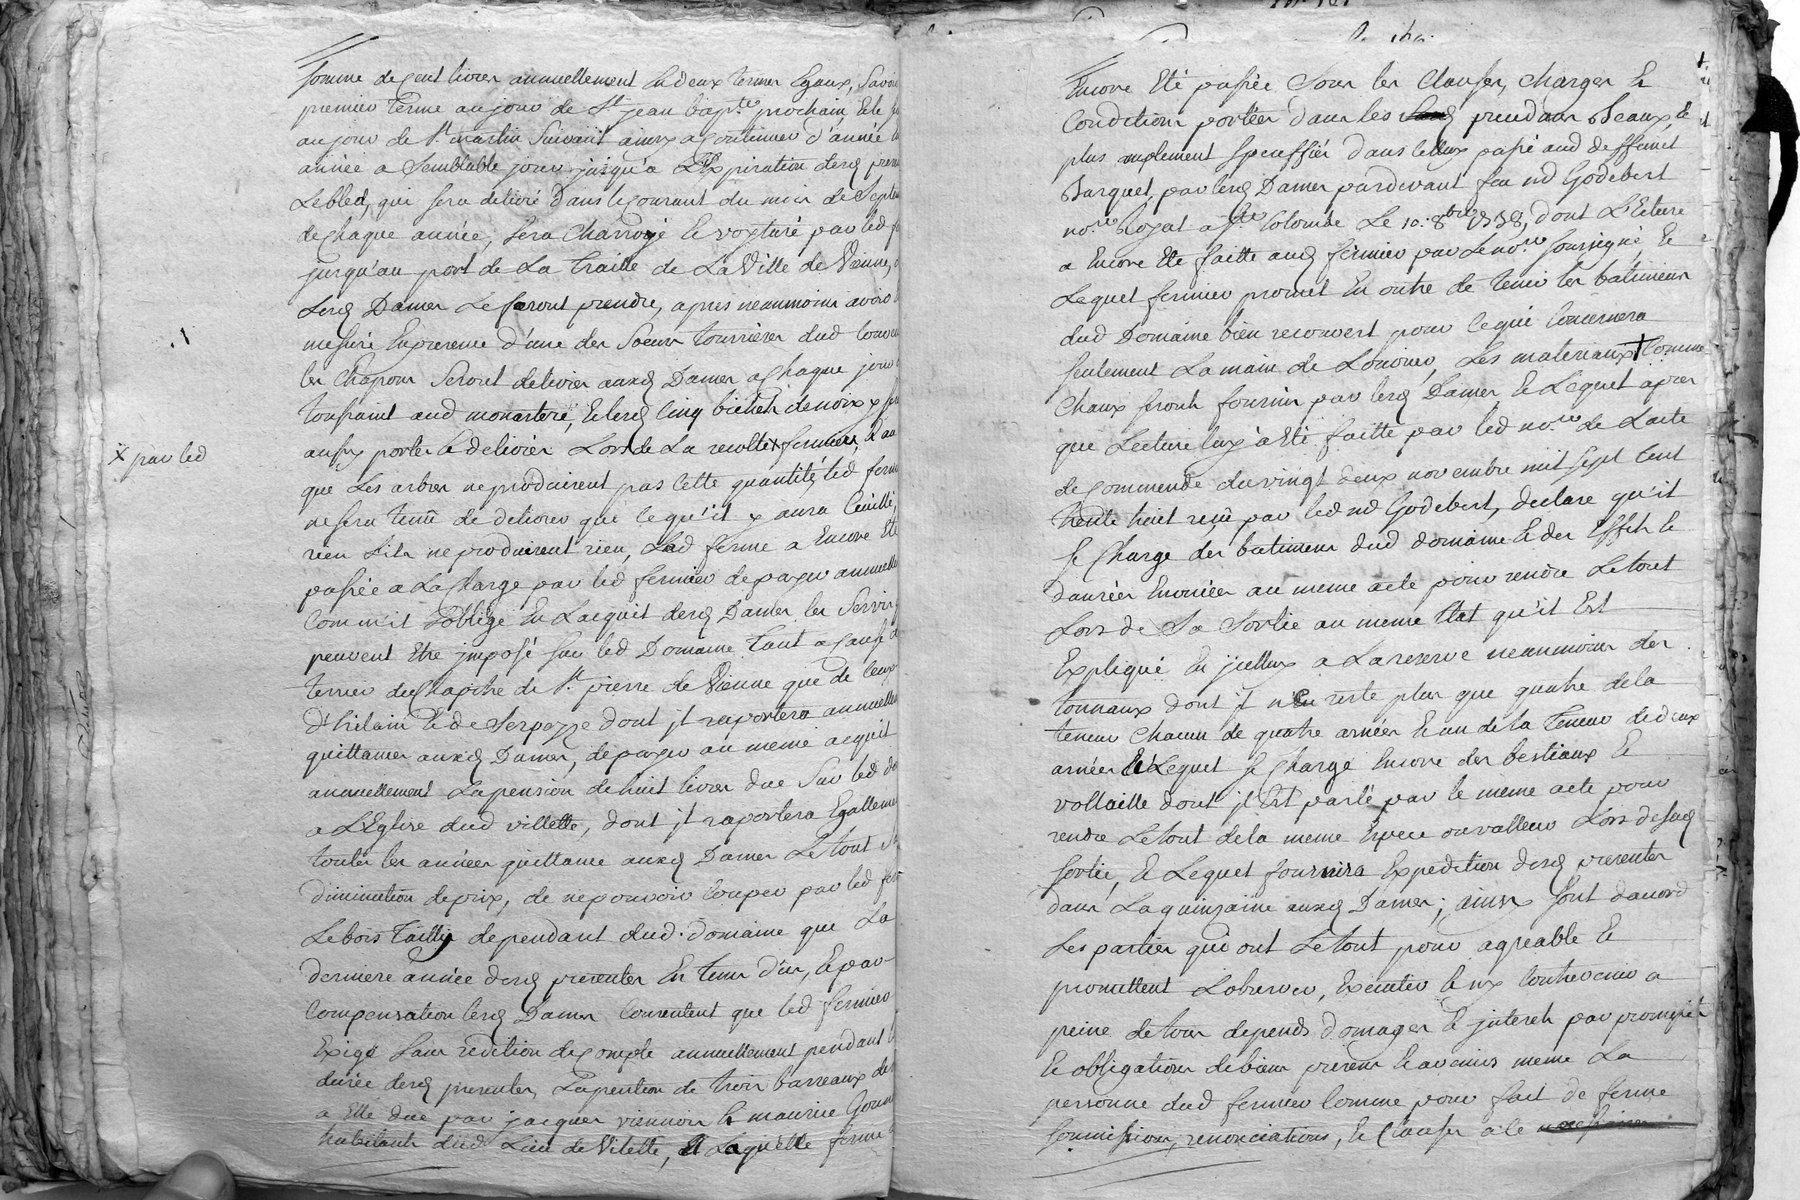 somme de cent livres annuellement En deux termes Egaux, Savoir
premier terme au jour de St jean bapte prochain, Et le
au jour de St martin Suivant ainsy a Continuer d'année
année a Semblable jour jusqu'a L'Expiration desd
Lebled, qui sera delivré Dans le Courant du mois de Septem
de Chaque année, Sera Charroyé Et voxturé par led
jusqu'au port de La traille de La Ville de Vienne,
Lesd Dames Le feront prendre, apres neanmoins avoir
mesuré En presence d'une des Soeurs tourrieres dud
les Chapons Seront delivrés auxd Dames a Chaque jour
toussaint aud monastere, Et lesd Cinq bichets de noix x
aussy portés Et delivrés Lors de La recolte x fermier, Et au
x par led
que Les arbres ne produirent pas Cette quantité, led
ne sera tenu de delivrer que ce qu'il y aura Ceuilly,
rien S'ils ne produisent rien, Lad ferme a Encore Eté
passée a La Charge par led fermier de payer annuelle
Comm'il s'oblige En L'acquit desd Dames les Servis
peuvent Etre jmposé sur led Domaine tant a Cause
terrier du Chapitre de St pierre de Vienne que de
d'hilain Et de Serpezze dont jl raportera annuelle
quittances auxd Dames, de payer au meme acquit
annuellement La pension de huit livres due Sur led
a L'Eglise dud villette, dont jl raportera Egallemen
toutes les années quittance auxd Dames Le tout
diminution de prix, de ne pouvoir Couper par led
Le bois taillis dependant dud. domaine que La
derniere année desd presentes En tems d'ûe, Et par
Compensation lesd Dames Consentent que led fermier
Exige sans redition de Compte annuellement pendant
durée desd presentes, La pention de trois barreaux de
a Elle due par jacques viennois Et maurice
habitants dud Lieu de Vilette, Et Laquelle ferme
Encore Eté passée Sous les Clauses, Charges Et
Conditions portées dans les precedans Beaux, Et
plus amplement Speciffiés dans Celluy passé aud deffunt
Barquet, par lesd Dames pardevant feu me Godebert
nore Royal a Ste Colombe Le 10. 8bre 1738, dont L'Ecture
a Encore Eté faitte aud fermier par Le nore soussigné, Et
Lequel fermier promet En outre de tenir les batimens
dud Domaine bien recouvert pour ce qui Concernera
seulement La main de L'ouvrier, Les materiaux + Comme
Chaux seront fournis par lesd Dames, Et Lequel apres
que Lecture luy a Eté faitte par led nore de L'acte
de Commende du vingt deux novembre mil sept Cent
trente huit reçu par led me Godebert, declare qu'il
se Charge des batimens dud domaine Et des Effets Et
danrées Enoncées au meme acte pour rendre Le tout
Lors de Sa Sortie au meme Etat qu'il Est
Expliqué En jcelluy a La reserve neanmoins des
tonnaux dont jl n'En reste plus que quatre de la
teneur Chacun de quatre anées Et un de la teneur de deux
anées Et Lequel se Charge Encore des bestiaux Et
vollaille dont jl Est parlé par le meme acte pour
rendre Le tout de la meme Espece ou valleur Lors de sad
sortie, Et Lequel fournira Expedition desd presentes
dans La quinzaine auxd Dames; ainsy sont d'acord
Les parties qui ont Le tout pour agreable Et
promettent L'observer, Executer Et n'y Contrevenir a
peine de tous depends domages Et jnterets par promesses
Et obligations de biens presens Et avenirs meme La
personne dud fermier Comme pour fait de ferme
soumissions, renonciations, Et Clauses a ce necessaires